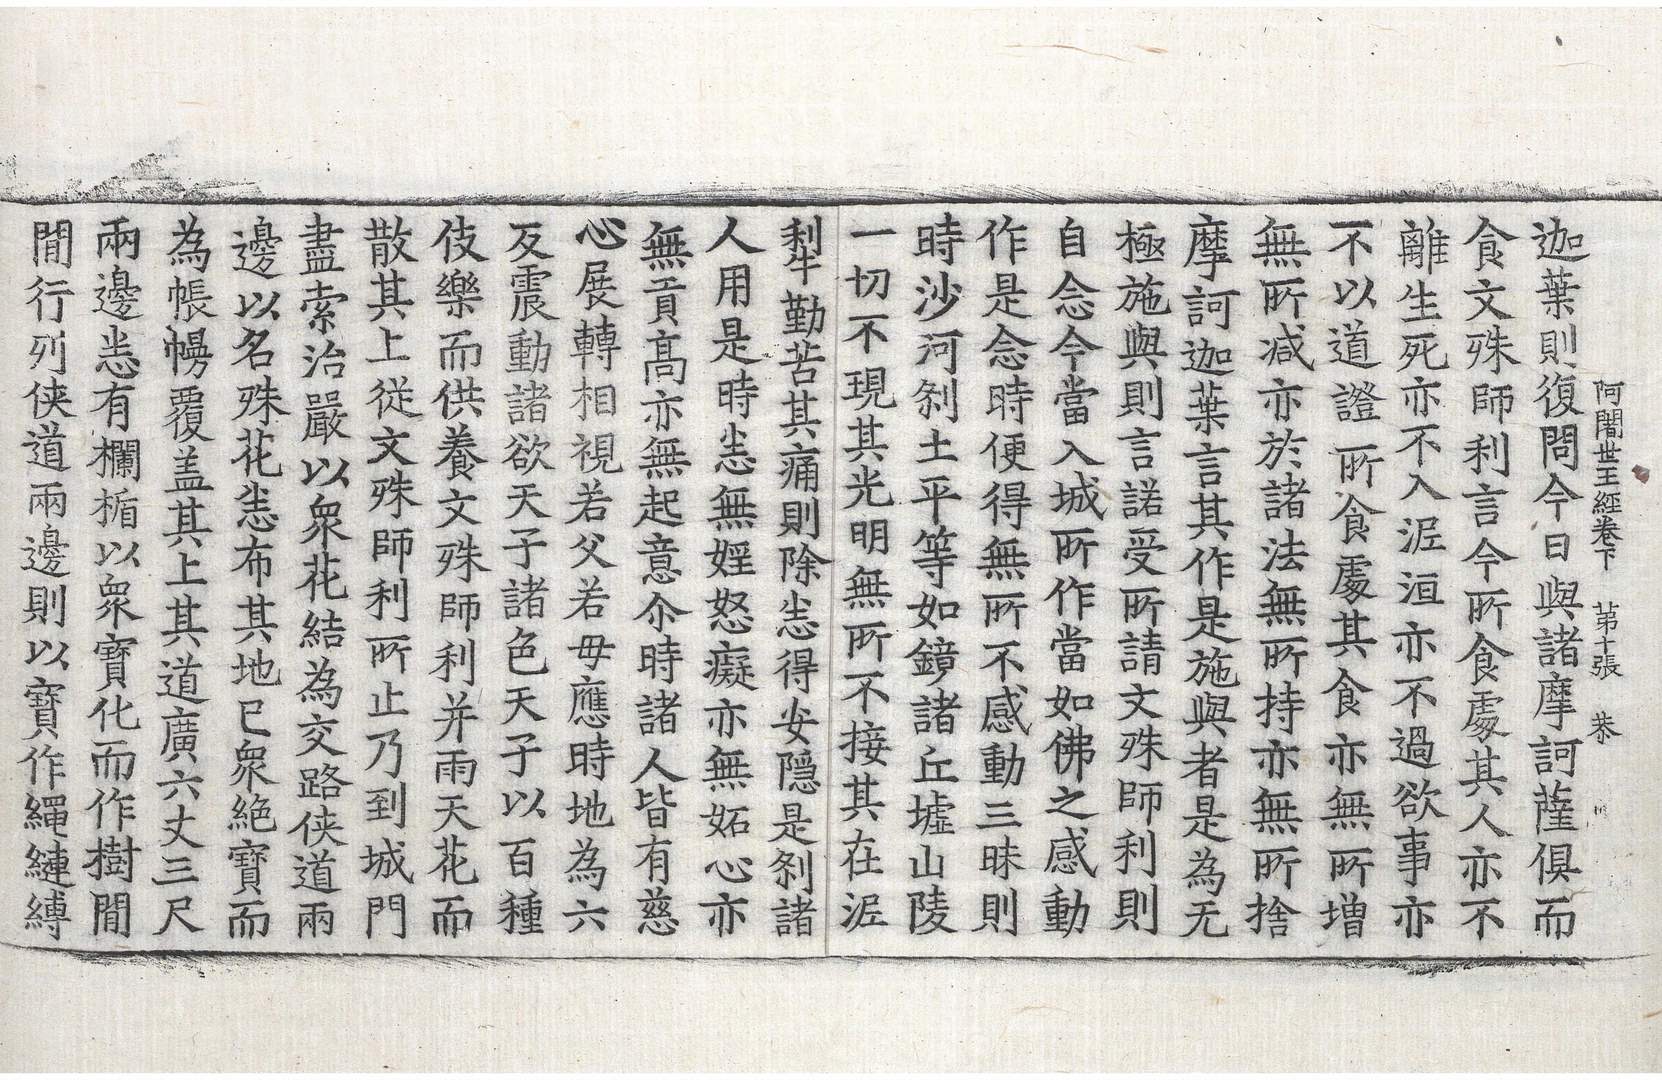 阿闍世王經卷下　第十張　恭
迦葉則復問今日與諸摩訶薩俱而
食文殊師利言今所食處其人亦不
離生死亦不入泥洹亦不過欲事亦
不以道證所食處其食亦無所增
無所减亦於諸法無所持亦無所捨
摩訶迦葉言其作是施與者是為无
極施與則言諾受所請文殊師利則
自念今當入城所作當如佛之感動
作是念時便得無所不感動三昧則
時沙河剎土平等如鏡諸丘墟山陵
一切不現其光明無所不接其在泥
犁勤苦其痛則除悉得安隱是剎諸
人用是時悉無婬怒癡亦無妬心亦
無貢高亦無起意尒時諸人皆有慈
心展轉相視若父若母應時地為六
反震動諸欲天子諸色天子以百種
伎樂而供養文殊師利并雨天花而
散其上從文殊師利所止乃到城門
盡索治嚴以衆花結為交路俠道兩
邊以名殊花悉布其地已衆絶寶而
為帳幔覆盖其上其道廣六丈三尺
兩邊悉有欄楯以衆寶化而作樹間
間行列俠道兩邊則以寶作繩縺縛